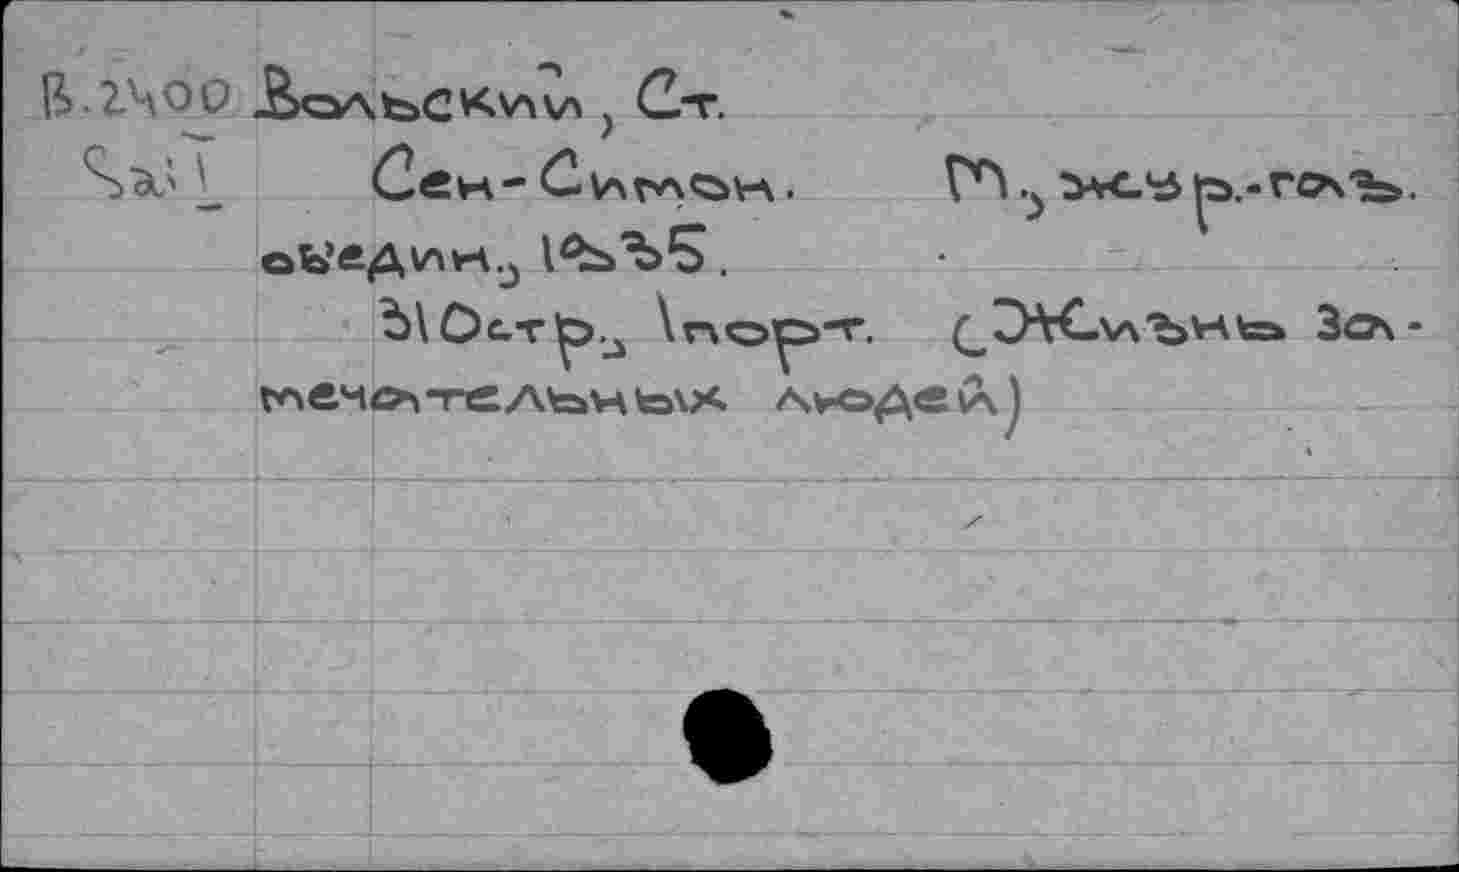 В.2400 Вольский, Ст.
Sai1 Сен-Симон. М., журн.-газ.
объедин., 1935.
310стр., 1порт. (Жизнь За-
мечательных людей)